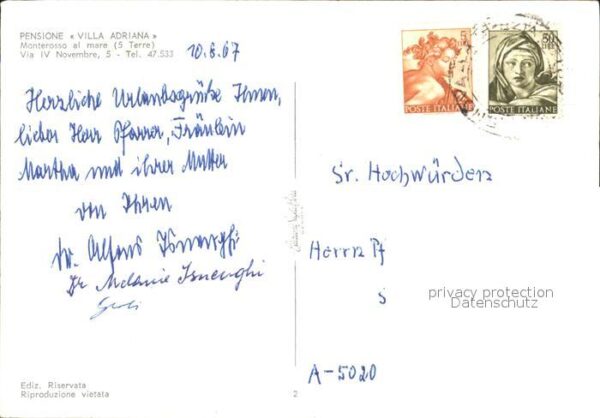 PENSIONE « VILLA ADRIANA »
Monterosso al mare (5 Terre)
Via IV Novembre, 5 - Tel. 47.533
10.8.67
Herzliche Urlaubsgrüße Ihnen,
lieber Herr Pfarrer, Fräulein
Martha und ihrer Mutter
von Ihren
Dr. Alfons Isnenghi
Dr Melanie Isnenghi
5
POSTE ITALIANE
30
LIRE
POSTE ITALIANE
Sr. Hochwürden
Herrn Pf
S
privacy protection
Datenschutz
A-5020
Ediz. Riservata
Riproduzione vietata
2